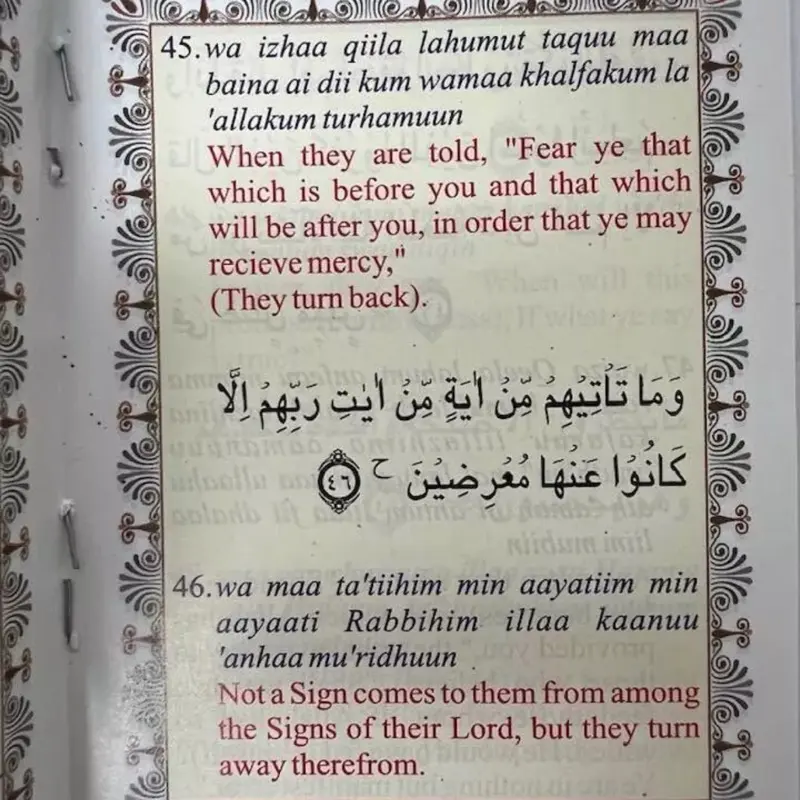 45. wa izhaa qiila lahumut taquu maa
baina ai dii kum wamaa khalfakum la
'allakum turhamuun
When they are told, "Fear ye that
which is before you and that which
will be after you, in order that ye may
recieve mercy,"
(They turn back).
وَمَا تَاْتِيْهِمْ مِّنْ اٰيَةٍ مِّنْ اٰيٰتِ رَبِّهِمْ اِلَّا
كَانُوْا عَنْهَا مُعْرِضِيْنَ ح ٤٦
46. wa maa ta'tiihim min aayatiim min
aayaati Rabbihim illaa kaanuu
'anhaa mu'ridhuun
Not a Sign comes to them from among
the Signs of their Lord, but they turn
away therefrom.